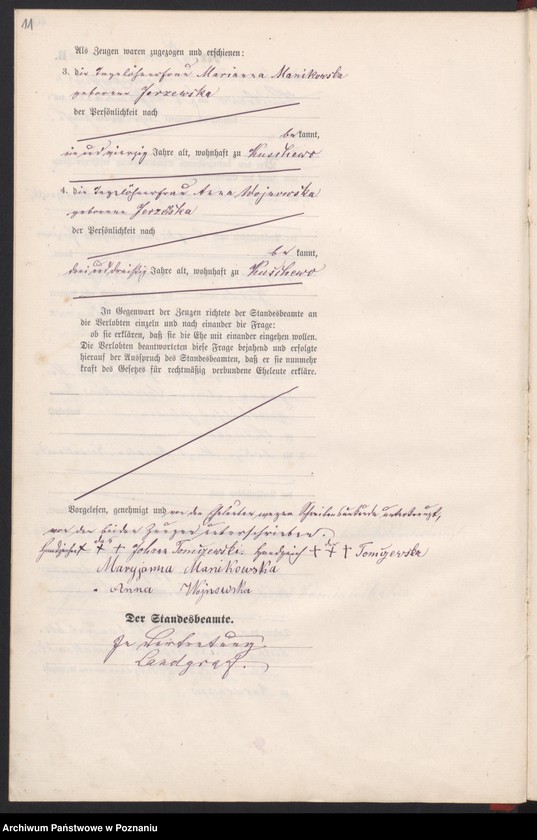 11
Als Zeugen waren zugezogen und erschienen:
3. die Tagelöhnerfrau Marianna Manikowska
geborene Jerzewska
der Persönlichkeit nach
be kannt,
ein und vierzig Jahre alt, wohnhaft zu Kuschewo
4. die Tagelöhnerfrau Anna Wojnowska
geborene
der Persönlichkeit nach
be kannt,
drei und dreißig Jahre alt, wohnhaft zu Kuschewo
In Gegenwart der Zeugen richtete der Standesbeamte an
die Verlobten einzeln und nach einander die Frage:
ob sie erklären, daß sie die Ehe mit einander eingehen wollen.
Die Verlobten beantworteten diese Frage bejahend und erfolgte
hierauf der Ausspruch des Standesbeamten, daß er sie nunmehr
kraft des Gesetzes für rechtmäßig verbundene Eheleute erkläre.
Vorgelesen, genehmigt und von den Eheleuten wegen Schreibensunkunde unterkreuzt,
von den beiden Zeugen unterschrieben.
Handzeichen des Johann Handzeichen der
Maryjanna Manikowska
Anna Wojnowska
Der Standesbeamte.
In Vertretung.
Landgraf.
Archiwum Państwowe w Poznaniu